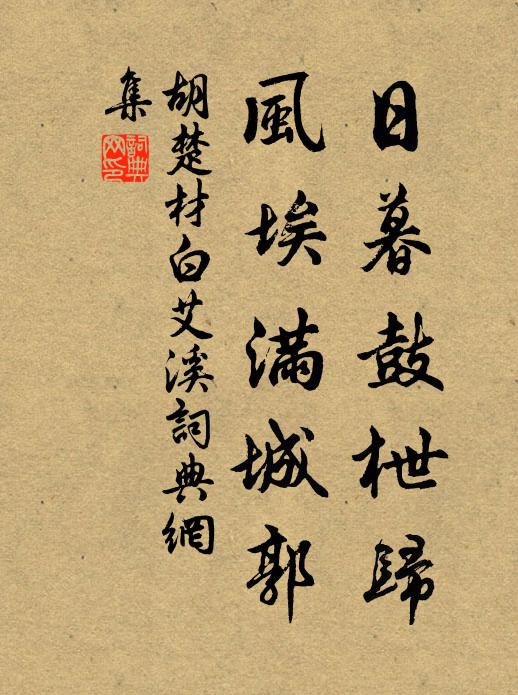 日暮鼓枻歸
風埃滿城郭
胡楚材白艾溪詞典網
集
詞典網印